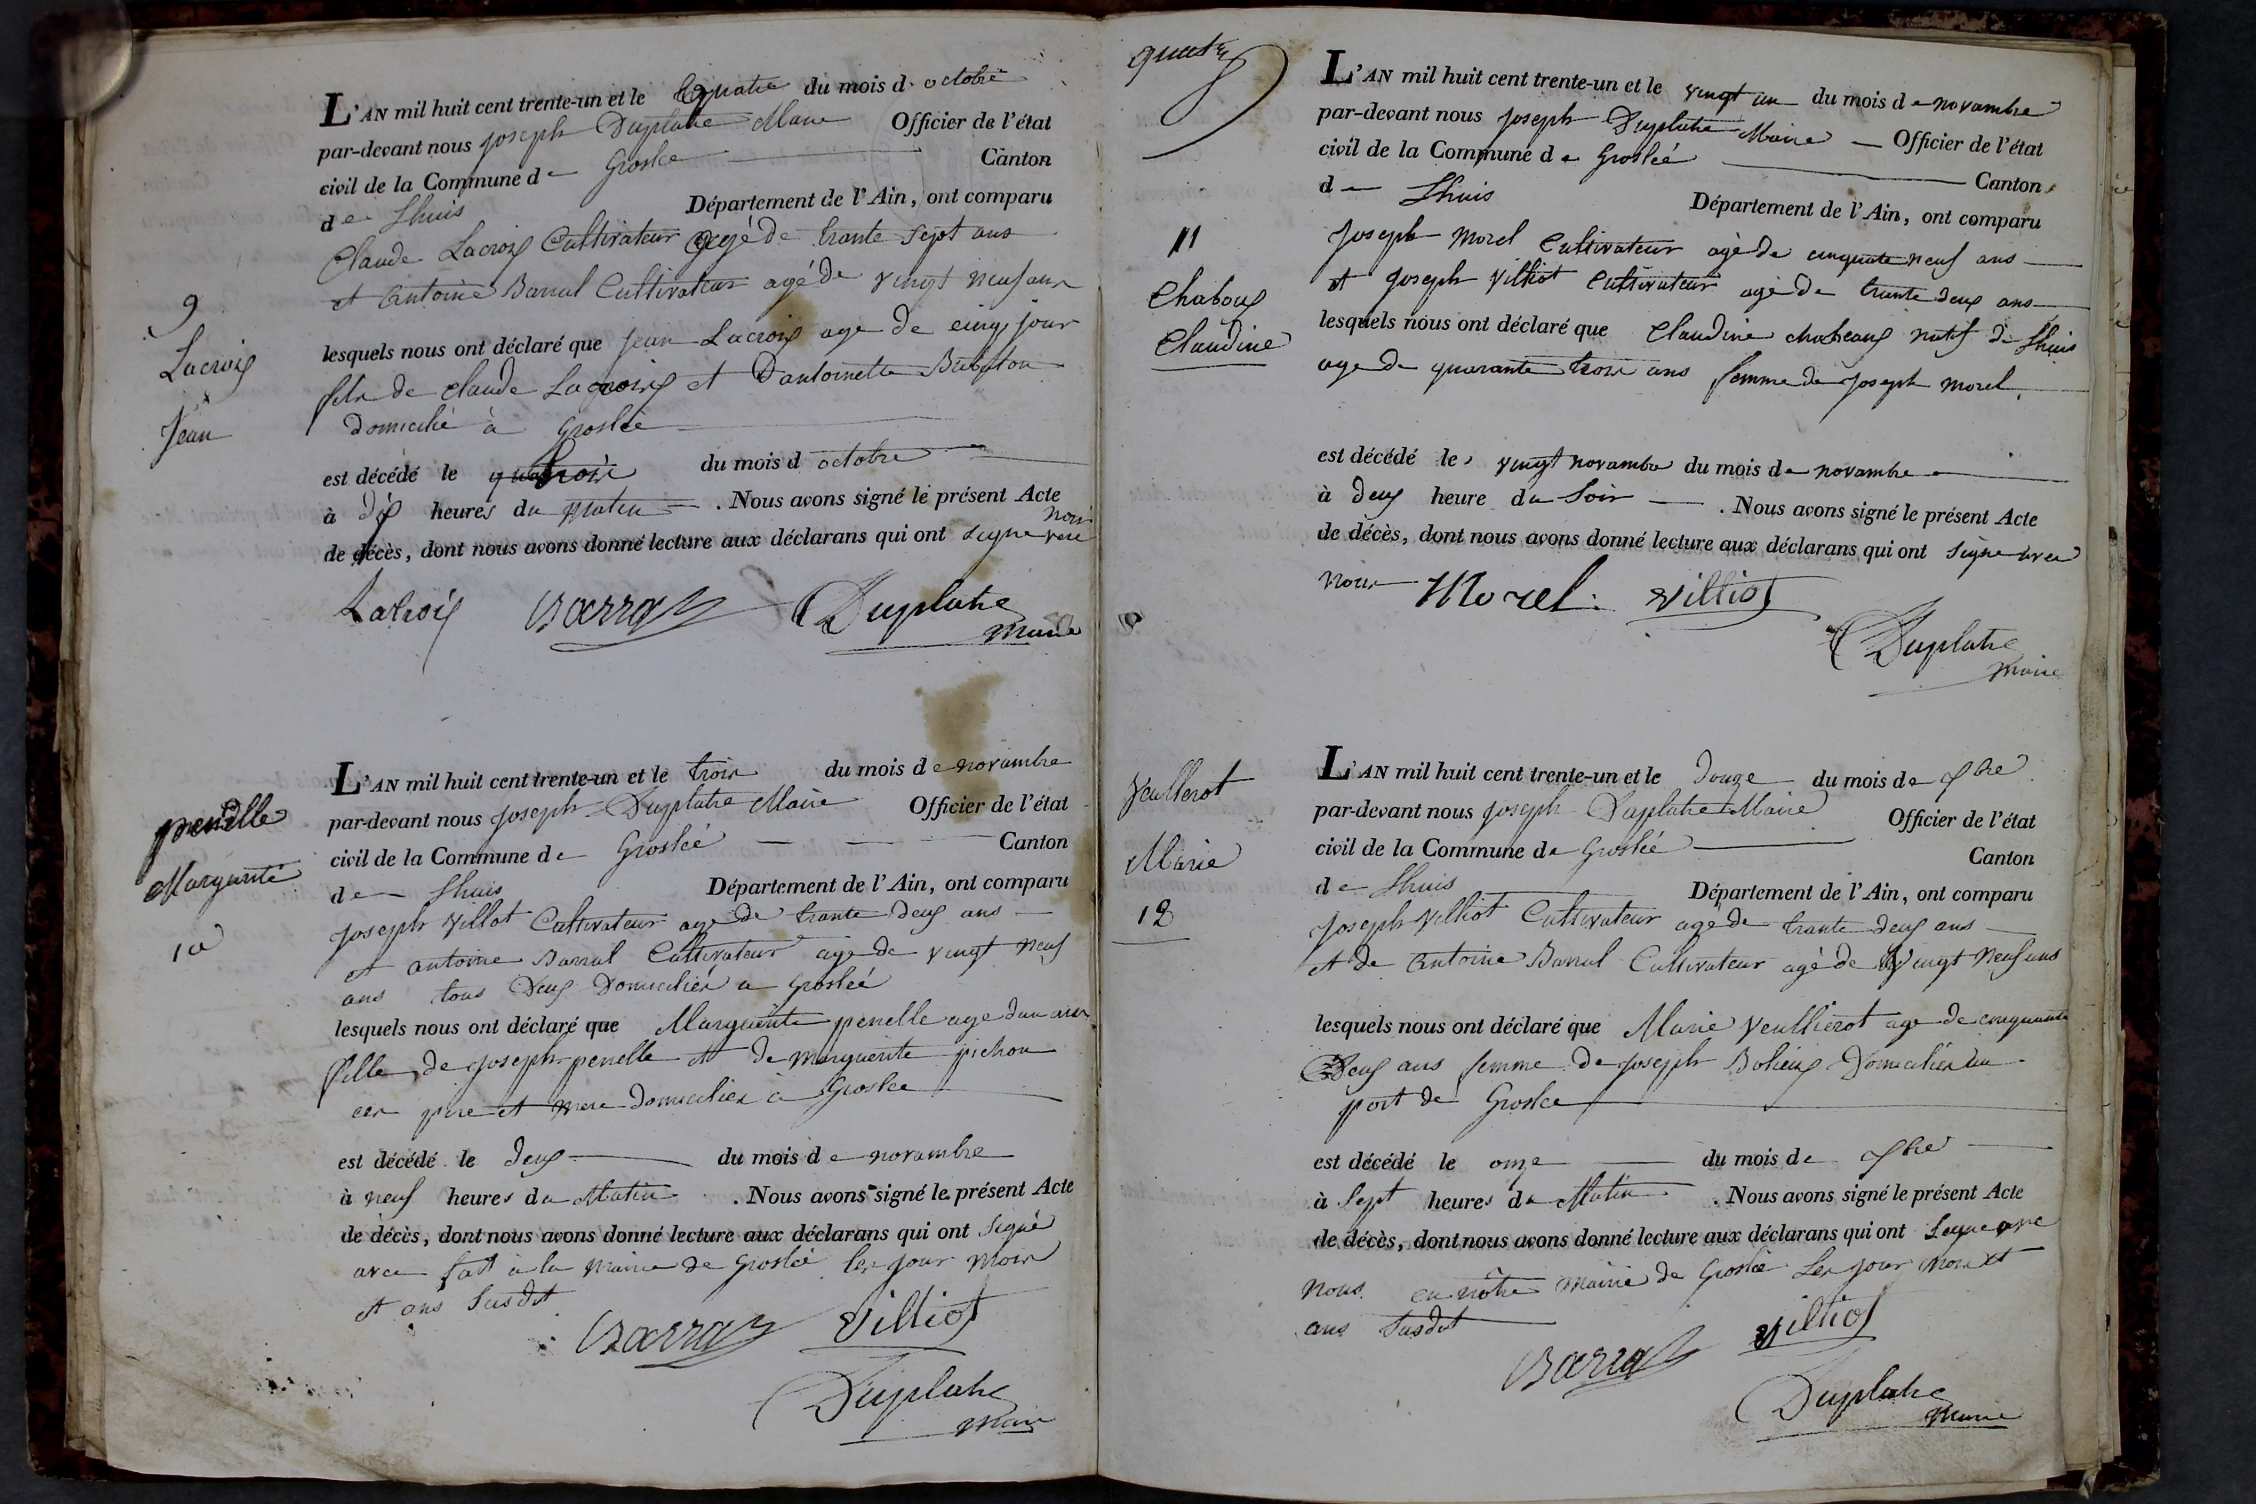 9
Lacroix
Jean
L'AN mil huit cent trente-un et le quatre du mois d'octobre
par-devant nous joseph Duplatre Maire Officier de l'état
civil de la Commune de Groslée Canton
de Lhuis Département de l'Ain, ont comparu
Claude Lacroix Cultivateur agé de trante sept ans
et Antoine Barral Cultivateur agé de vingt neuf ans
lesquels nous ont déclaré que Jean Lacroix age de cinq jour
fils de claude Lacroix et D'antoinette
domicilié à Groslée
est décédé le trois du mois d octobre
à dix heures du Matin . Nous avons signé le présent Acte
de décès, dont nous avons donné lecture aux déclarans qui ont signe avec nous
Lacroix Barral Duplatre
maire
penelle
Marguerite
10
L'AN mil huit cent trente-un et le trois du mois de novambre
par-devant nous joseph Duplatre Maire Officier de l'état
civil de la Commune de Groslée Canton
de Lhuis Département de l'Ain, ont comparu
joseph Villot Cultivateur agé de trante deux ans
et antoine Barral Cultivateur agé de vingt neuf
ans tous Deux Domiciliés a Groslée
lesquels nous ont déclaré que Marguerite penelle age dun ans
fille de joseph penelle et de marguerite pichon
ces pere et mere domicilies à Groslee
est décédé le deux du mois de novambre
à neuf heures du Matin . Nous avons signé le présent Acte
de décès, dont nous avons donné lecture aux déclarans qui ont signé
avec fait à la mairie de Groslée les jour mois
et ans susdit
Barral Villiot
Duplatre
maire
quatre
11
Chaboux
Claudine
L'AN mil huit cent trente-un et le vingt un du mois de novambre
par-devant nous joseph Duplatre Maire Officier de l'état
civil de la Commune de Groslée Canton
de Lhuis Département de l'Ain, ont comparu
joseph morel Cultivateur agé de cinquante neuf ans
et joseph Villiot Cultivateur agé de trante deux ans
lesquels nous ont déclaré que Claudine natif de Lhuis
age de quarante trois ans femme de joseph morel
est décédé le vingt novambre du mois de novambre
à deux heure du Soir . Nous avons signé le présent Acte
de décès, dont nous avons donné lecture aux déclarans qui ont signe avec
nous Morel. Villiot
Duplatre
maire
Veullerot
Marie
12
L'AN mil huit cent trente-un et le douze du mois de
par-devant nous joseph Duplatre Maire Officier de l'état
civil de la Commune de Groslée Canton
de Lhuis Département de l'Ain, ont comparu
joseph Villiot Cultivateur agé de trante deux ans
et de Antoine Barral Cultivateur agé de vingt neuf ans
lesquels nous ont déclaré que Marie Veullierot age de cinquante
Deux ans femme de joseph Domiciliés au
port de Groslee
est décédé le onze du mois de
à Sept heures du Matin . Nous avons signé le présent Acte
de décès, dont nous avons donné lecture aux déclarans qui ont signe avec
nous en nôtre mairie de Groslée Les jour mois et
ans susdit
Barral Villiot
Duplatre
maire